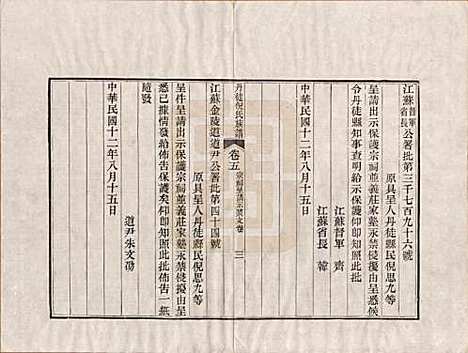 江蘇督軍省長公署批第三千七百九十六號
原具呈人丹徒縣民倪思九等
呈請出示保護宗祠並義莊家塾永禁侵擾由呈悉候
令丹徒縣知事查明給示保護仰即知照此批
江蘇督軍　齊
江蘇省長　韓
中華民國十二年八月十五日
丹徒倪氏族譜
卷五
三
江蘇金陵道道尹公署批第四十四號
原具呈人丹徒縣民倪思九等
呈件呈請出示保護宗祠並義莊家塾永禁侵擾由
悉已據情發給佈告保護矣仰即知照此批佈告一紙
隨發
道尹朱文劭
中華民國十二年八月十五日